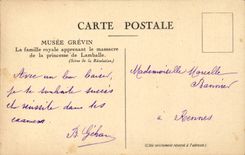 CARTE POSTALE
MUSÉE GRÉVIN
La famille royale apprenant le massacre
de la princesse de Lamballe.
(Scène de la Révolution.)
Avec un bon baiser,
je te souhaite succès
et réussite dans tes
examens
B. 
Mademoiselle Marcelle
à Rennes
(Côté exclusivement réservé à l'adresse.)